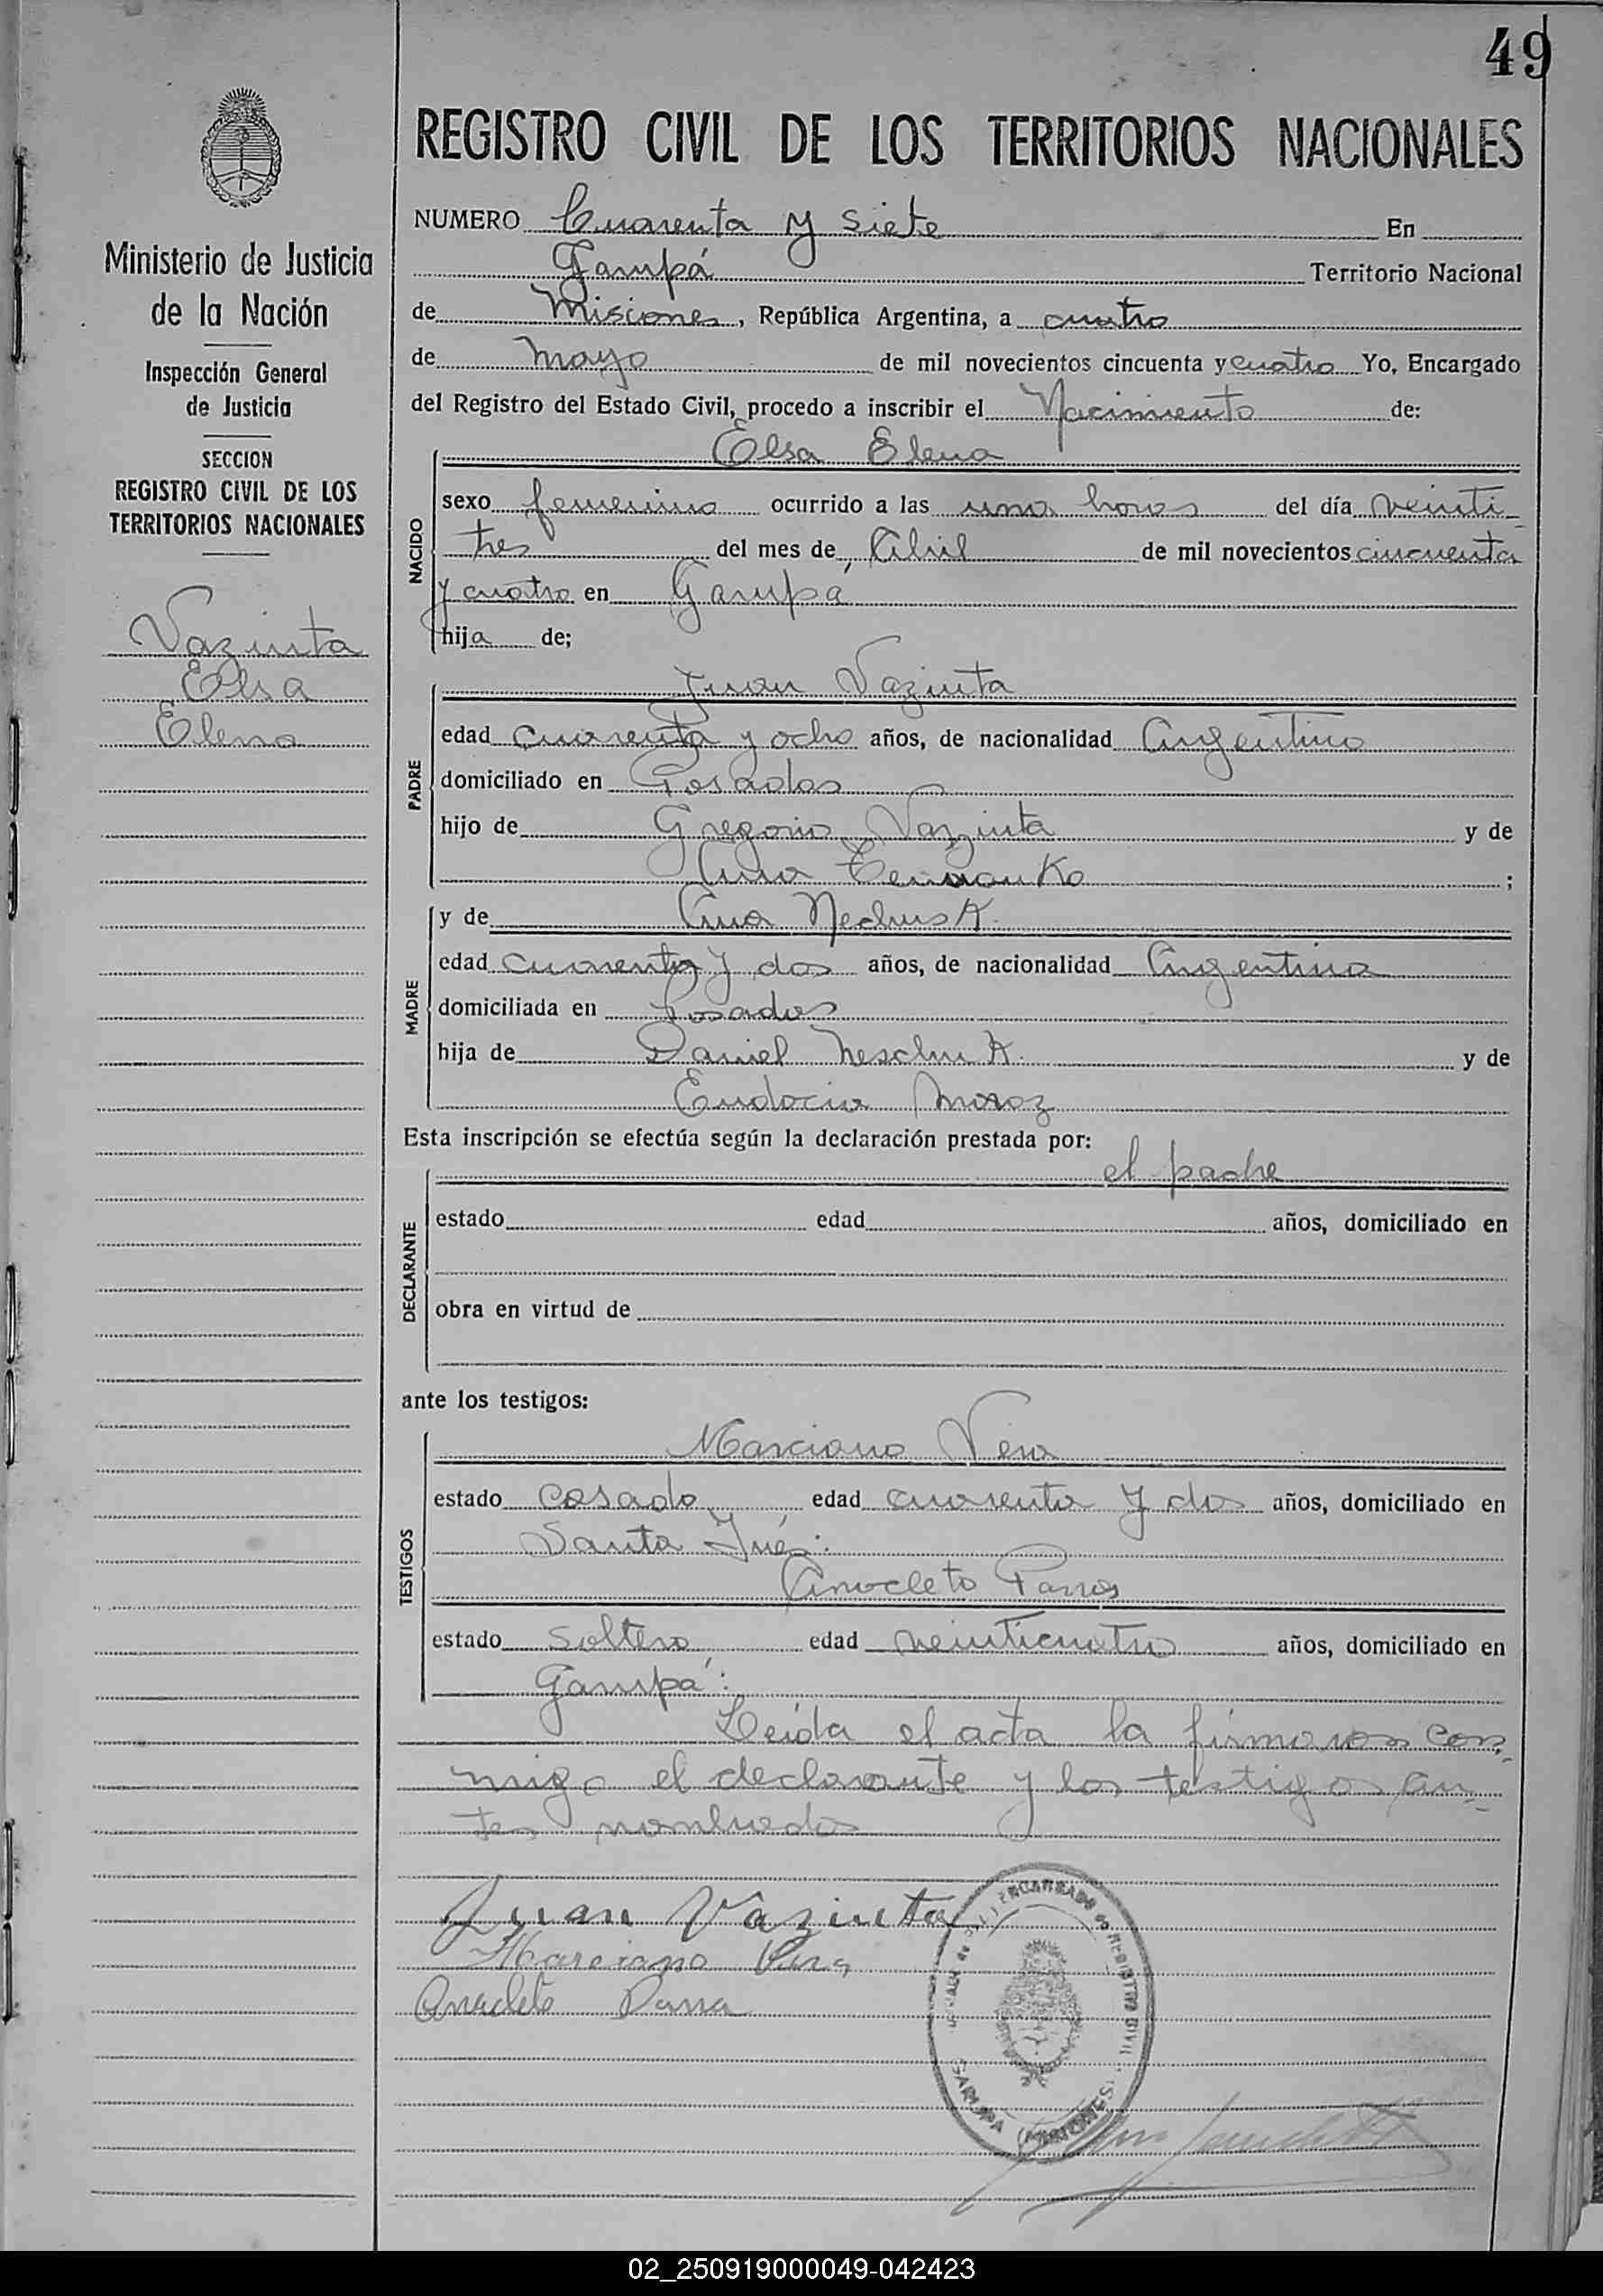 49
REGISTRO CIVIL DE LOS TERRITORIOS NACIONALES
Ministerio de Justicia
de la Nación
Inspección General
de Justicia
SECCION
REGISTRO CIVIL DE LOS
TERRITORIOS NACIONALES
Vaziuta
Elsa
Elena
NUMERO Cuarenta y siete En
Garupá Territorio Nacional
de Misiones, República Argentina, a cuatro
de mayo de mil novecientos cincuenta y cuatro Yo, Encargado
del Registro del Estado Civil, procedo a inscribir el Nacimiento de:
Elsa Elena
NACIDO
sexo femenino ocurrido a las una horas del día veinti-
tres del mes de Abril de mil novecientos cincuenta
y cuatro en Garupá
hija de;
PADRE
Juan Vaziuta
edad cuarenta y ocho años, de nacionalidad Argentino
domiciliado en Posadas
hijo de Gregorio Vaziuta y de
Ana ;
MADRE
y de Ana
edad cuarenta y dos años, de nacionalidad Argentina
domiciliada en Posadas
hija de Daniel y de
Eudocia Moroz
Esta inscripción se efectúa según la declaración prestada por:
el padre
DECLARANTE
estado edad años, domiciliado en
obra en virtud de
ante los testigos:
TESTIGOS
Marciano Vera
estado casado edad cuarenta y dos años, domiciliado en
Santa Inés.
Anacleto Parra
estado soltero edad veinticuatro años, domiciliado en
Garupá.
Leída el acta la firmaron con-
migo el declarante y los testigos an-
tes nombrados
Juan Vaziuta
Marciano Vera
Anacleto Parra
ENCARGADO DE REGISTRO CIVIL
GARUPA (MISIONES)
02_250919000049-042423